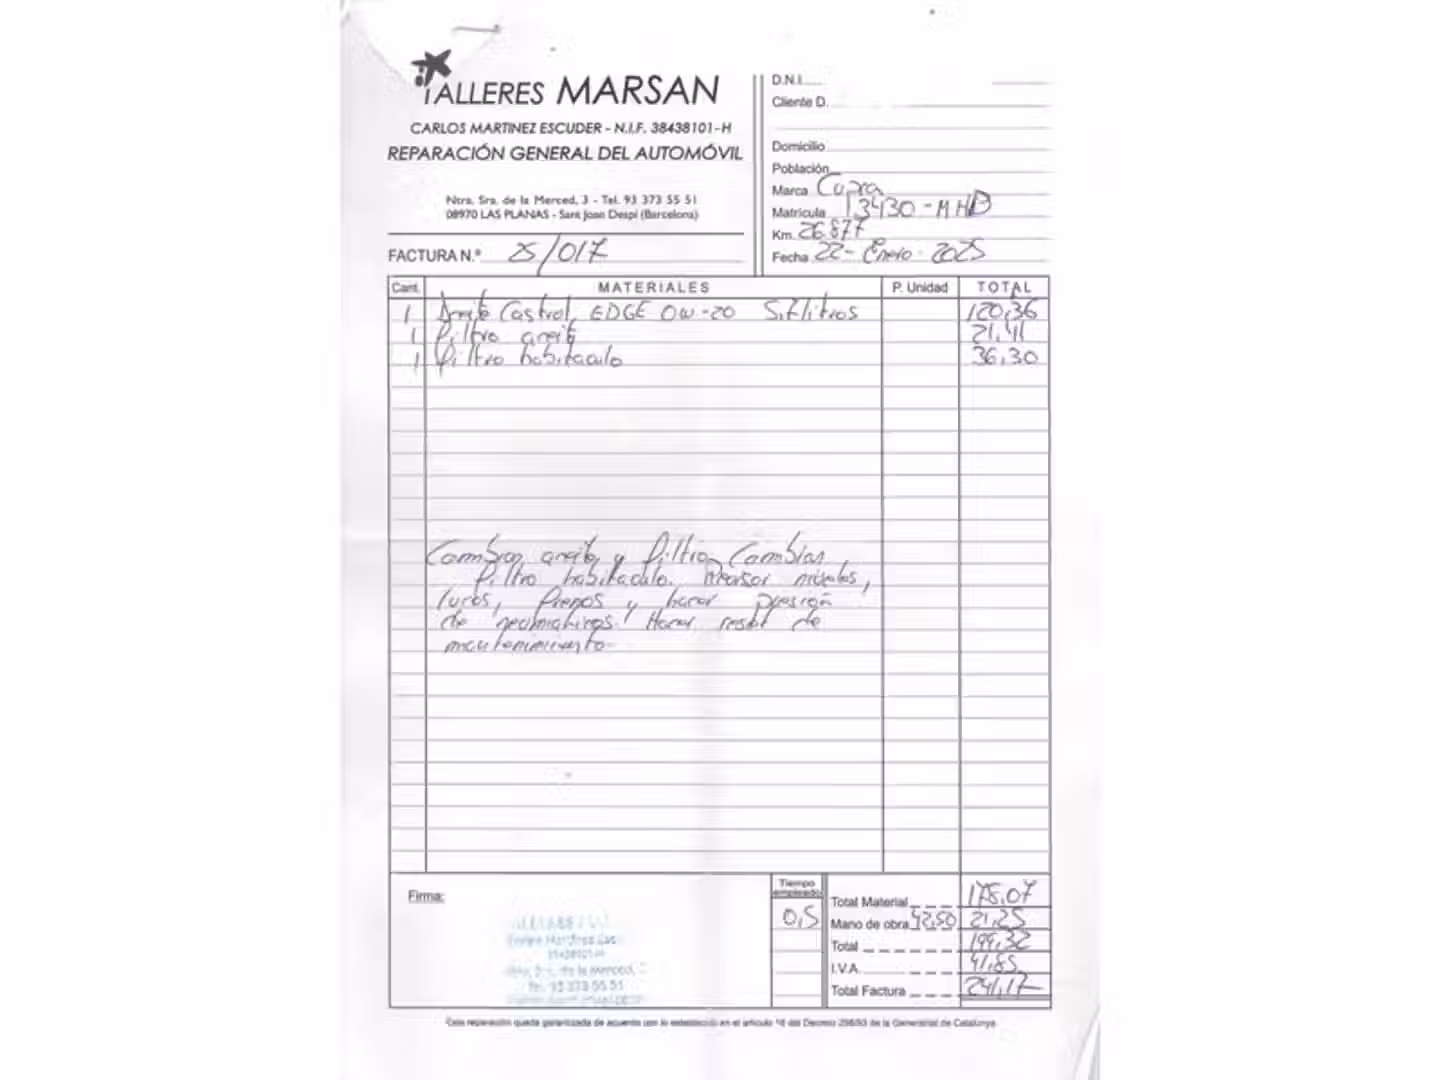 TALLERES MARSAN
CARLOS MARTINEZ ESCUDER - N.I.F. 38438101-H
REPARACIÓN GENERAL DEL AUTOMÓVIL
Ntra. Sra. de la Merced, 3 - Tel. 93 373 55 51
08970 LAS PLANAS - Sant Joan Despí (Barcelona)
FACTURA N.º 25/017
D.N.I.
Cliente D.
Domicilio
Población
Marca Cupra
Matrícula 3430-MHB
Km. 26.877
Fecha 22-Enero-2025
Cant. MATERIALES P. Unidad TOTAL
1 Aceite Castrol EDGE 0W-20 5,7 litros 120,36
1 Filtro aceite 21,41
1 Filtro habitaculo 36,30
Cambiar aceite y filtro, Cambiar
filtro habitaculo. Revisar niveles,
luces, frenos y hacer presión
de neumaticos. Hacer reset de
mantenimiento
Firma:
Tiempo empleado
0,5
Total Material 178,07
Mano de obra 42,50 21,25
Total 199,32
I.V.A. 41,85
Total Factura 241,17
93 373 55 51
Esta reparación queda garantizada de acuerdo con lo establecido en el artículo 16 del Decreto 298/93 de la Generalitat de Catalunya.